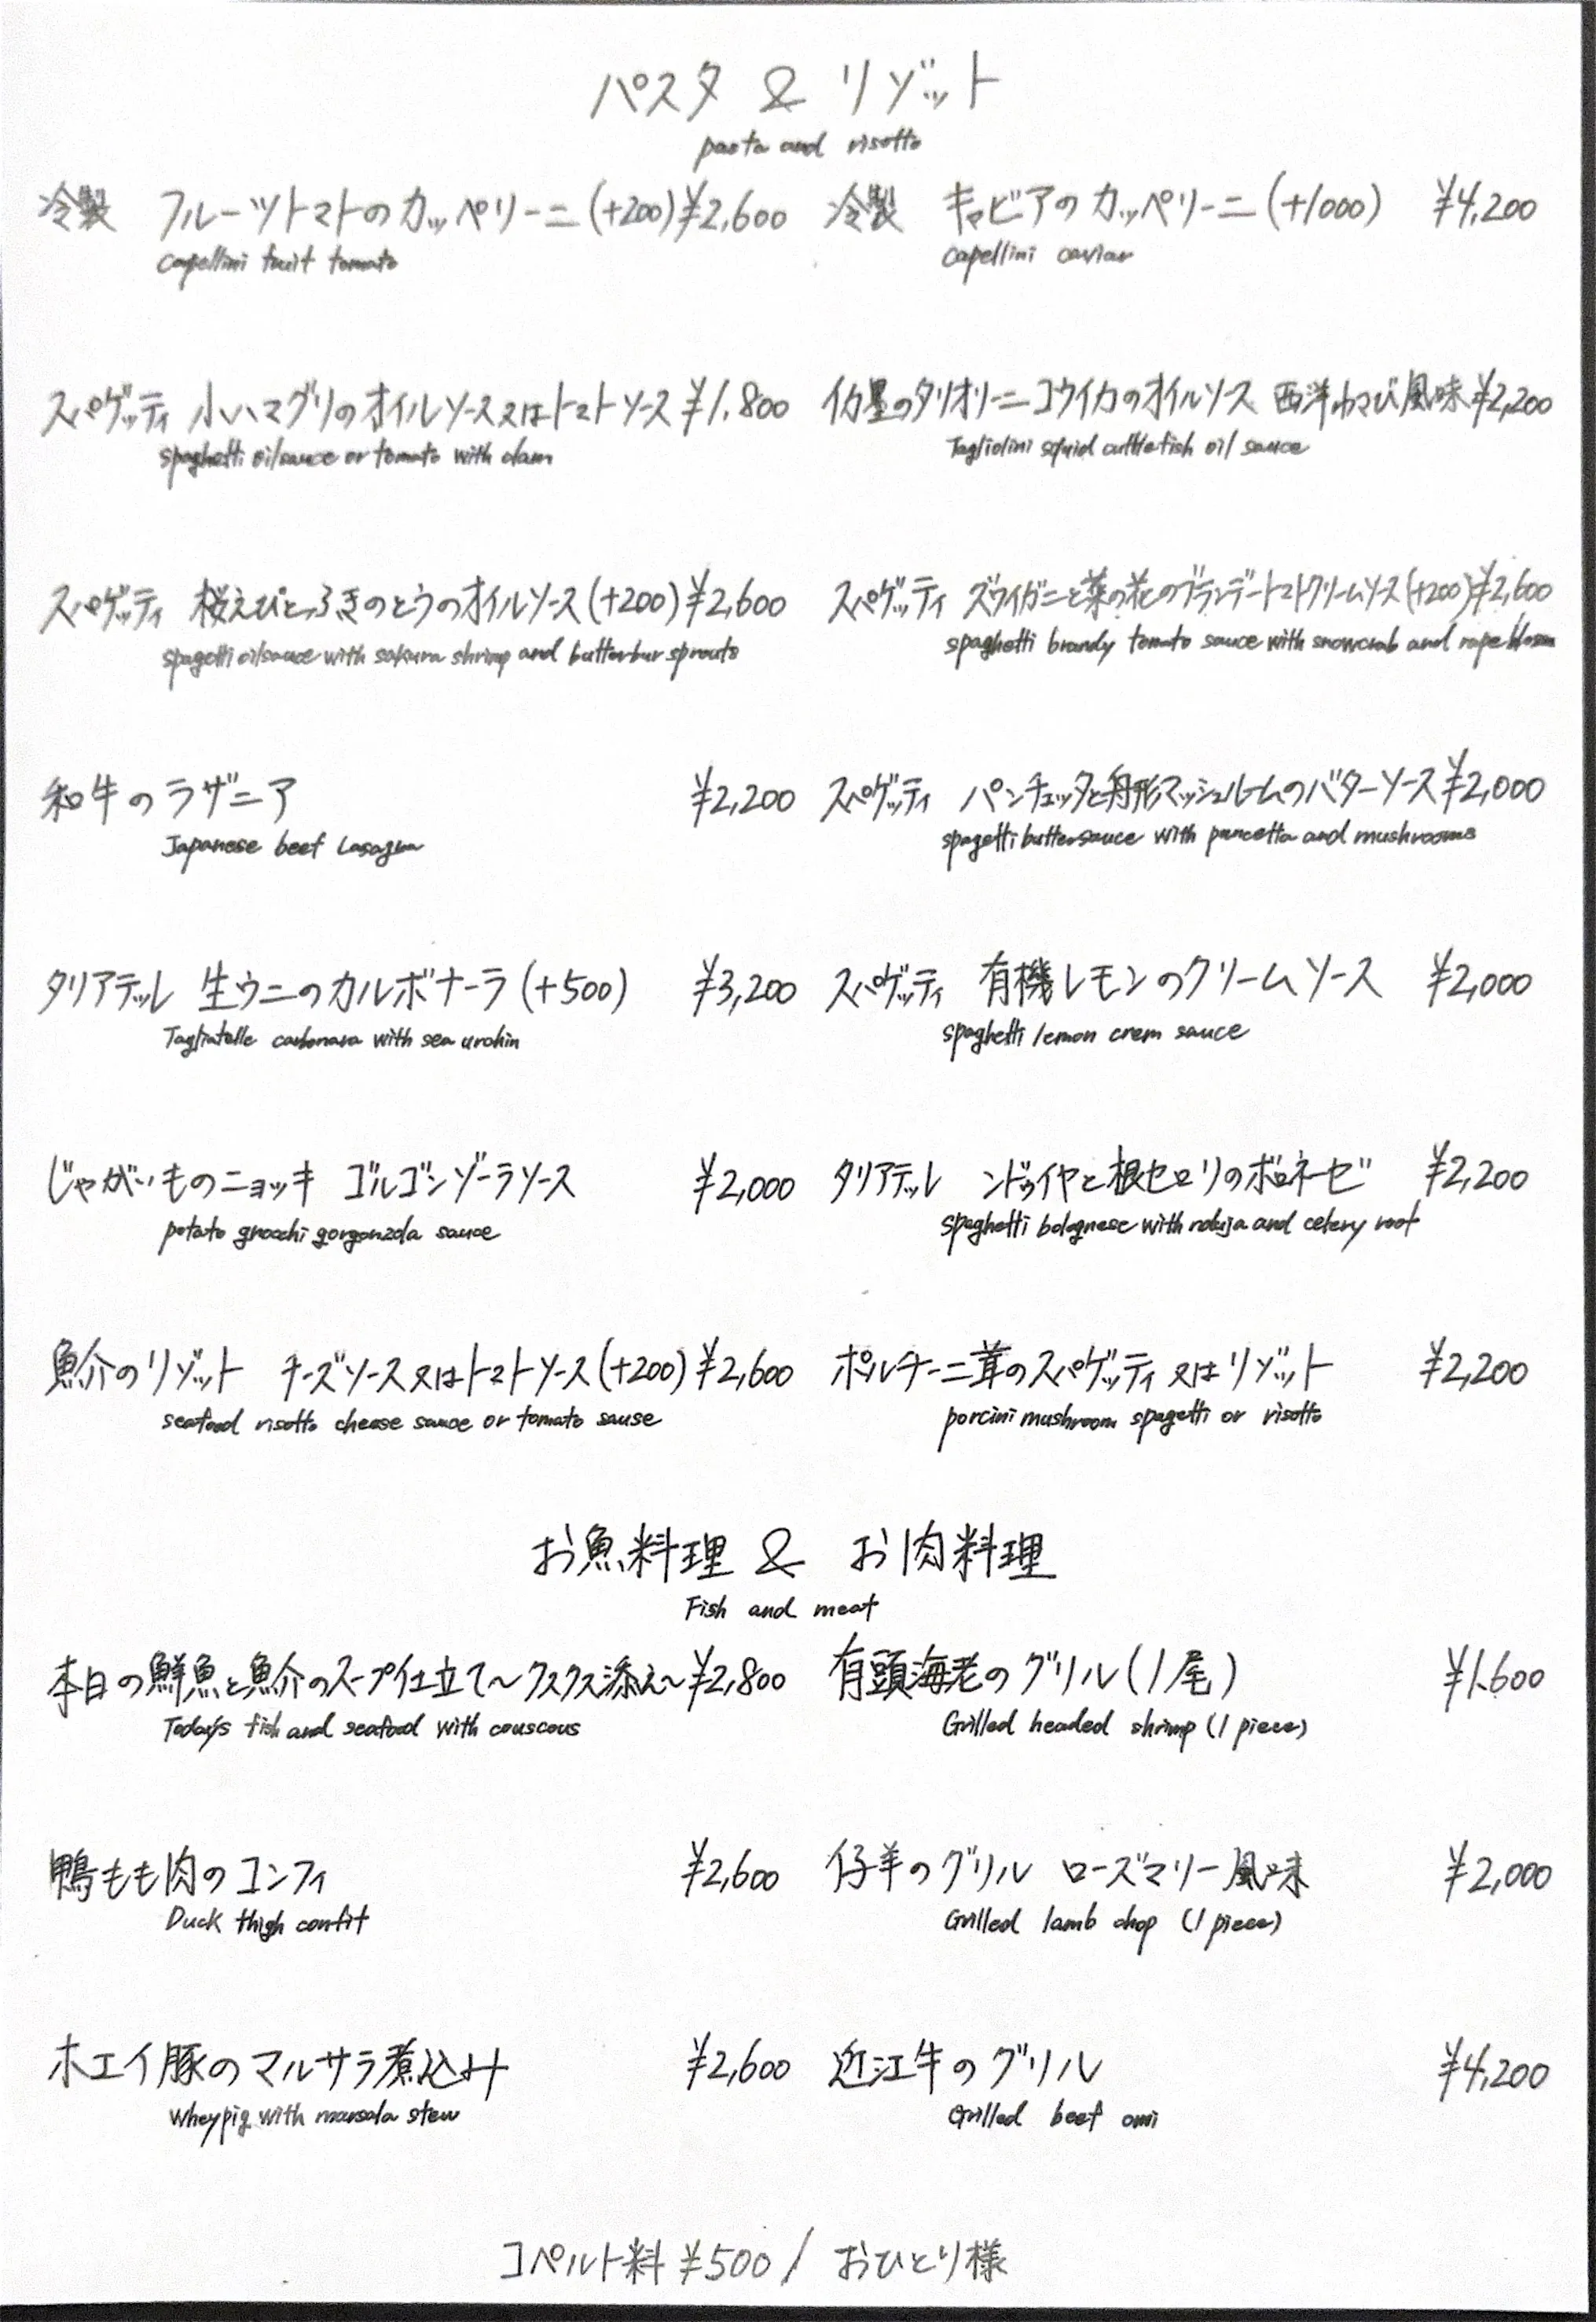 パスタ & リゾット
pasta and risotto
冷製 フルーツトマトのカッペリーニ (+200) ¥2,600
capellini fruit tomato
冷製 キャビアのカッペリーニ (+1000) ¥4,200
capellini caviar
スパゲッティ 小ハマグリのオイルソース又はトマトソース ¥1,800
spaghetti oil sauce or tomato with clam
イカ墨のタリオリーニ コウイカのオイルソース 西洋わさび風味 ¥2,200
Tagliolini squid cuttlefish oil sauce
スパゲッティ 桜えびとふきのとうのオイルソース (+200) ¥2,600
spagetti oil sauce with sakura shrimp and butterbur sprouts
スパゲッティ ズワイガニと菜の花のブランデートマトクリームソース (+200) ¥2,600
spaghetti brandy tomato sauce with snowcrab and rape
和牛のラザニア ¥2,200
Japanese beef Lasagna
スパゲッティ パンチェッタと舟形マッシュルームのバターソース ¥2,000
spagetti butter sauce with pancetta and mushrooms
タリアテッレ 生ウニのカルボナーラ (+500) ¥3,200
Tagliatelle carbonara with sea urchin
スパゲッティ 有機レモンのクリームソース ¥2,000
spaghetti lemon crem sauce
じゃがいものニョッキ ゴルゴンゾーラソース ¥2,000
potato gnocchi gorgonzola sauce
タリアテッレ ンドゥイヤと根セロリのボロネーゼ ¥2,200
spaghetti bolognese with nduja and celery root
魚介のリゾット チーズソース又はトマトソース (+200) ¥2,600
seafood risotto cheese sauce or tomato sause
ポルチーニ茸のスパゲッティ又はリゾット ¥2,200
porcini mushroom spagetti or risotto
お魚料理 & お肉料理
Fish and meat
本日の鮮魚と魚介のスープ仕立て〜クスクス添え〜 ¥2,800
Today's fish and seafood with couscous
有頭海老のグリル (1尾) ¥1,600
Grilled headed shrimp (1 piece)
鴨もも肉のコンフィ ¥2,600
Duck thigh confit
仔羊のグリル ローズマリー風味 ¥2,000
Grilled lamb chop (1 piece)
ホエイ豚のマルサラ煮込み ¥2,600
Wheypig with marsala stew
近江牛のグリル ¥4,200
Grilled beef omi
コペルト料 ¥500 / おひとり様